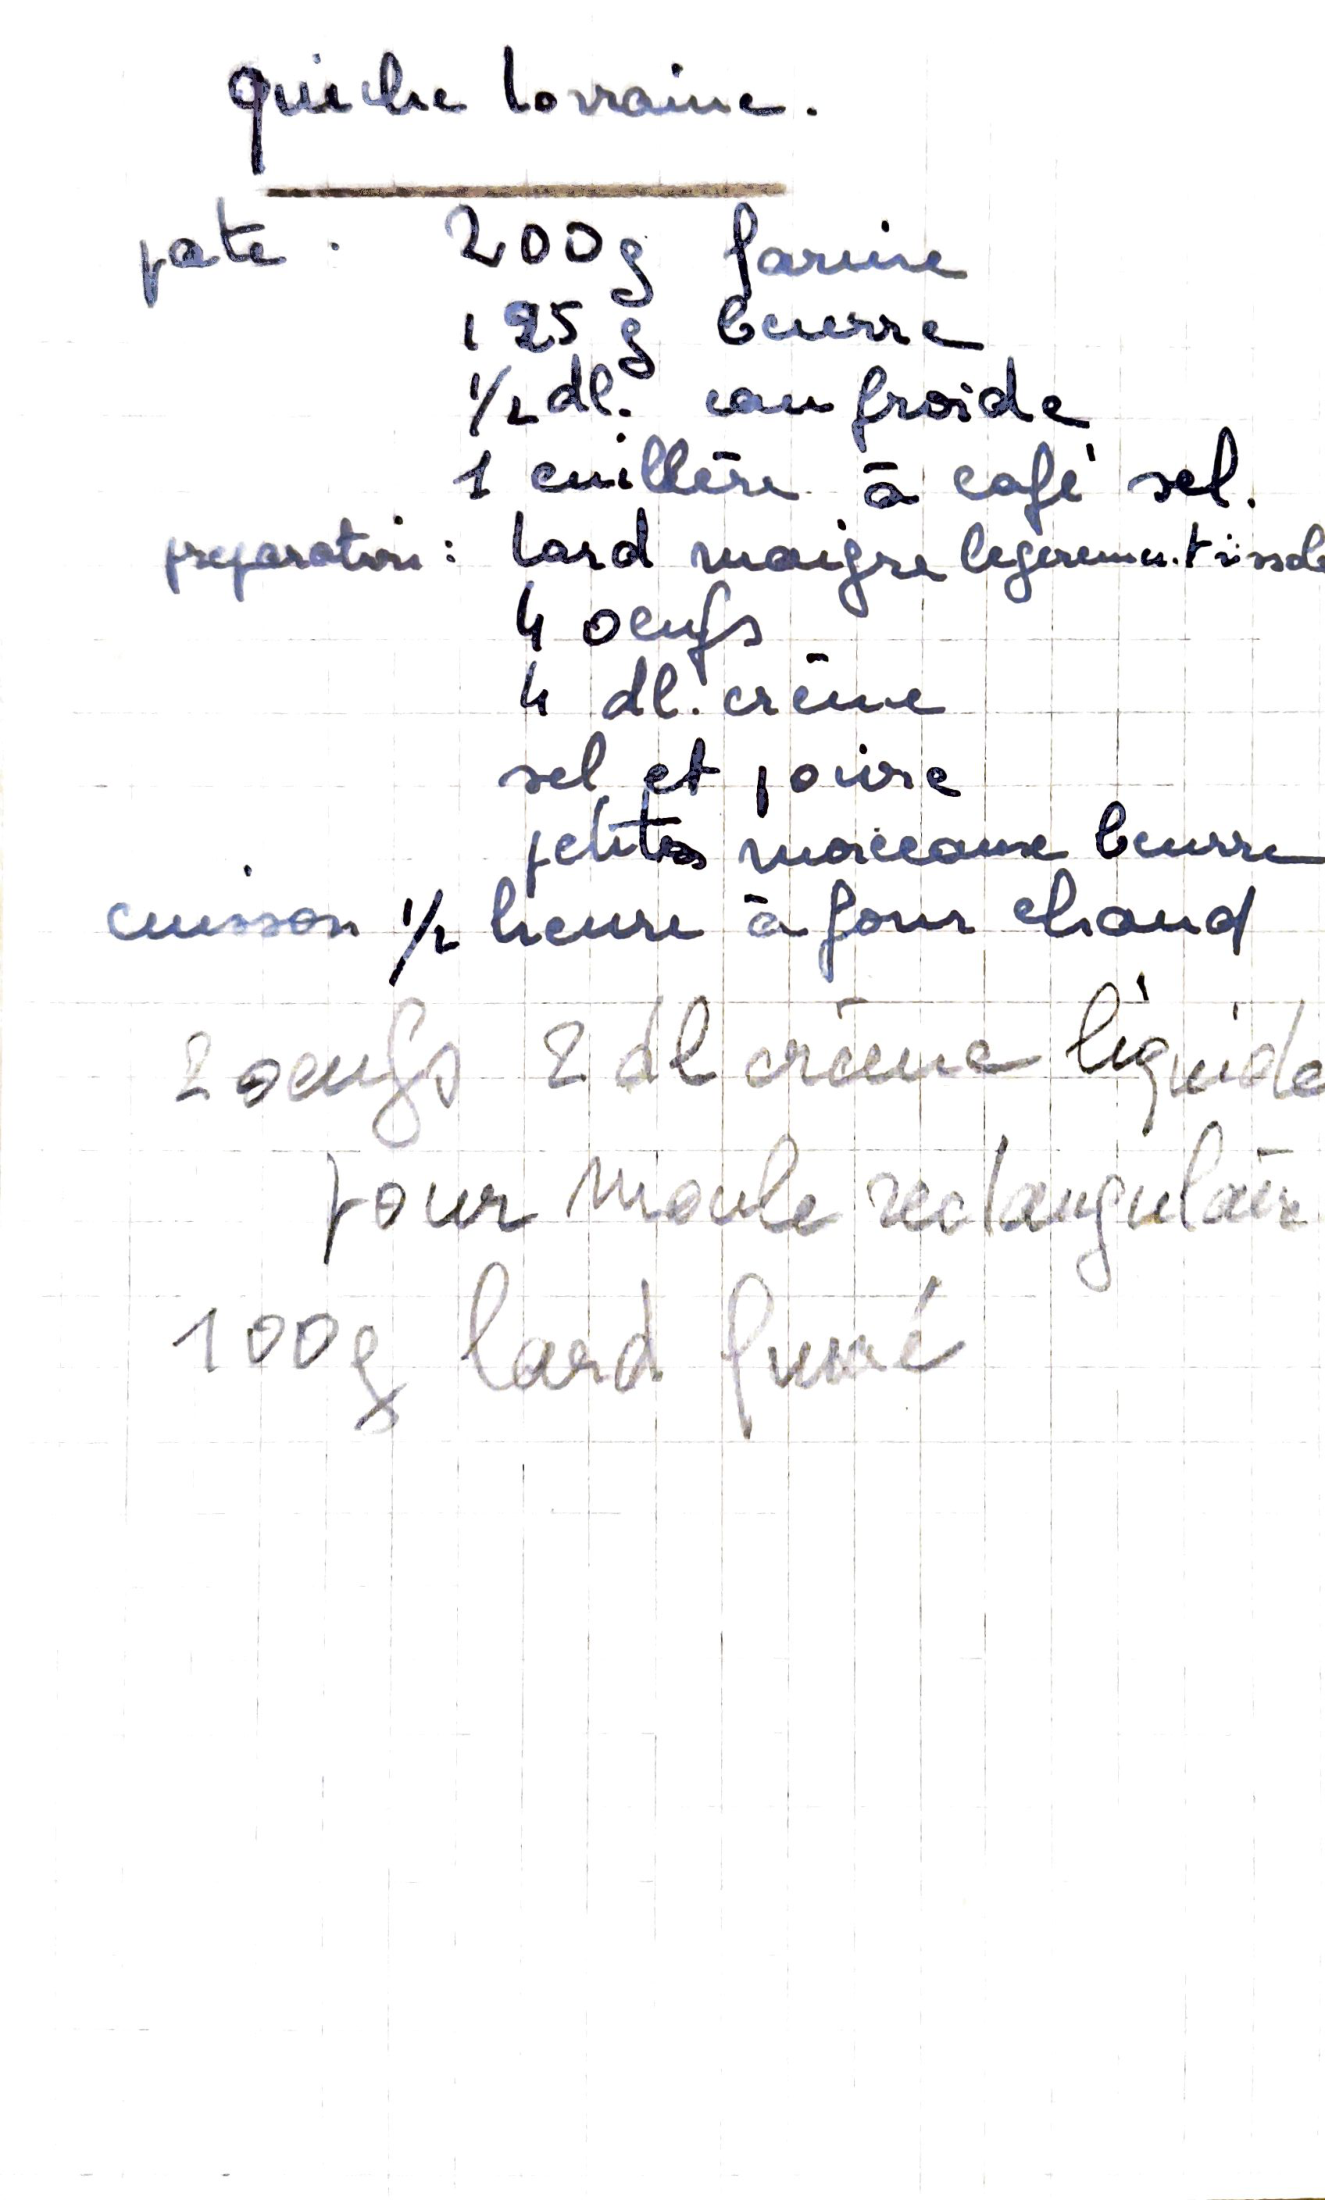 quiche lorraine.
pate. 200g farine
125 g beurre
1/2 dl. eau froide
1 cuillère à café sel.
preparation: lard maigre legerement rissole
4 oeufs
4 dl. crème
sel et poivre
petits morceaux beurre
cuisson 1/2 heure à four chaud
2 oeufs 2 dl crème liquide
pour moule rectangulaire
100g lard fumé